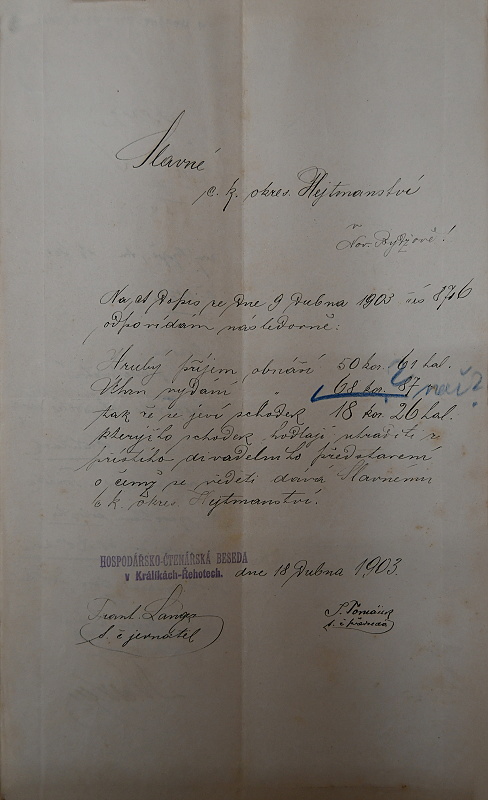 Slavné
c. k. okres. Hejtmanství
v
Nov. Bydžově!
Na ct Dopis ze dne 9 Dubna 1903 čís 8706
odpovídám následovně:
Hrubý příjem obnáší 50 kor. 61 hal.
Úhrn vydání " 68 kor. 87 "
tak že se jeví schodek 18 kor 26 hal.
kterýžto schodek hodlají uhraditi z
příštího divadelního představení
o čemž se věděti dává Slavnému
c k. okres. Hejtmanství.
HOSPODÁŘSKO-ČTENÁŘSKÁ BESEDA
v Králíkách-Řehotech. dne 18 Dubna 1903.
Frant. Langr
t. č jednatel
t. č předseda